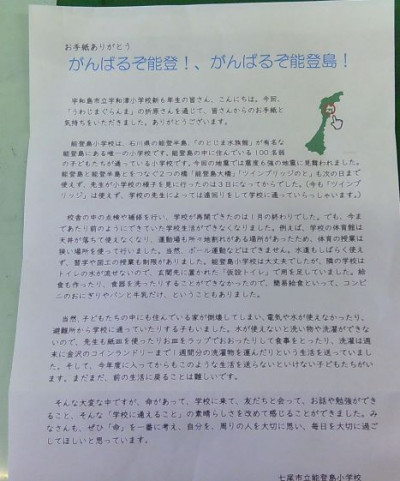 お手紙ありがとう
がんばるぞ能登！、がんばるぞ能登島！
宇和島市立宇和津小学校新６年生の皆さん、こんにちは。今回、
「うわじまぐらんま」の折原さんを通じて、皆さんからのお手紙と
気持ちをいただきました。ありがとうございます。
能登島小学校は、石川県の能登半島、「のとじま水族館」が有名な
能登島にある唯一の小学校です。能登島の中に住んでいる１００名弱
の子どもたちが通っている小学校です。今回の地震では震度６強の地震に見舞われました。
能登島と能登半島とをつなぐ２つの橋「能登島大橋」「ツインブリッジのと」も次の日まで
使えず、先生が小学校の様子を見に行ったのは３日になってからでした。（今も「ツインブ
リッジ」は使えず、学校の先生によっては遠回りをして学校に通っていらっしゃいます。）
校舎の中の点検や補修を行い、学校が再開できたのは１月の終わりでした。でも、今ま
であたり前のようにできていた学校生活ができなくなりました。例えば、学校の体育館は
天井が落ちて使えなくなり、運動場も所々地割れがある場所があったため、体育の授業は
狭い場所を使って行いました。当然、ボール運動などはできません。水道もしばらく使え
ず、習字や図工の授業も制限がありました。能登島小学校は大丈夫でしたが、隣の学校は
トイレの水が流せないので、玄関先に置かれた「仮設トイレ」で用を足していました。給
食も作ったり、食器を洗ったりすることができなかったので、簡易給食といって、コンビ
ニのおにぎりやパンと牛乳だけ、ということもありました。
当然、子どもたちの中にも住んでいる家が倒壊してしまい、電気や水が使えなかったり、
避難所から学校に通っていたりする子もいました。水が使えないと洗い物や洗濯ができな
いので、先生も紙皿を使ったりお皿をラップでおおったりして食事をとったり、洗濯は週
末に金沢のコインランドリーまで１週間分の洗濯物を運んだりという生活を送っていました。
そして、今年度に入ってからもこのような生活を送らないといけない子どもたちがい
ます。まだまだ、前の生活に戻ることは難しいです。
そんな大変な中ですが、命があって、学校に来て、友だちと会って、お話や勉強ができ
ること、そんな「学校に通えること」の素晴らしさを改めて感じることができました。み
なさんも、ぜひ「命」を一番に考え、自分を、周りの人を大切に思い、毎日を大切に過ご
してほしいと思っています。
七尾市立能登島小学校